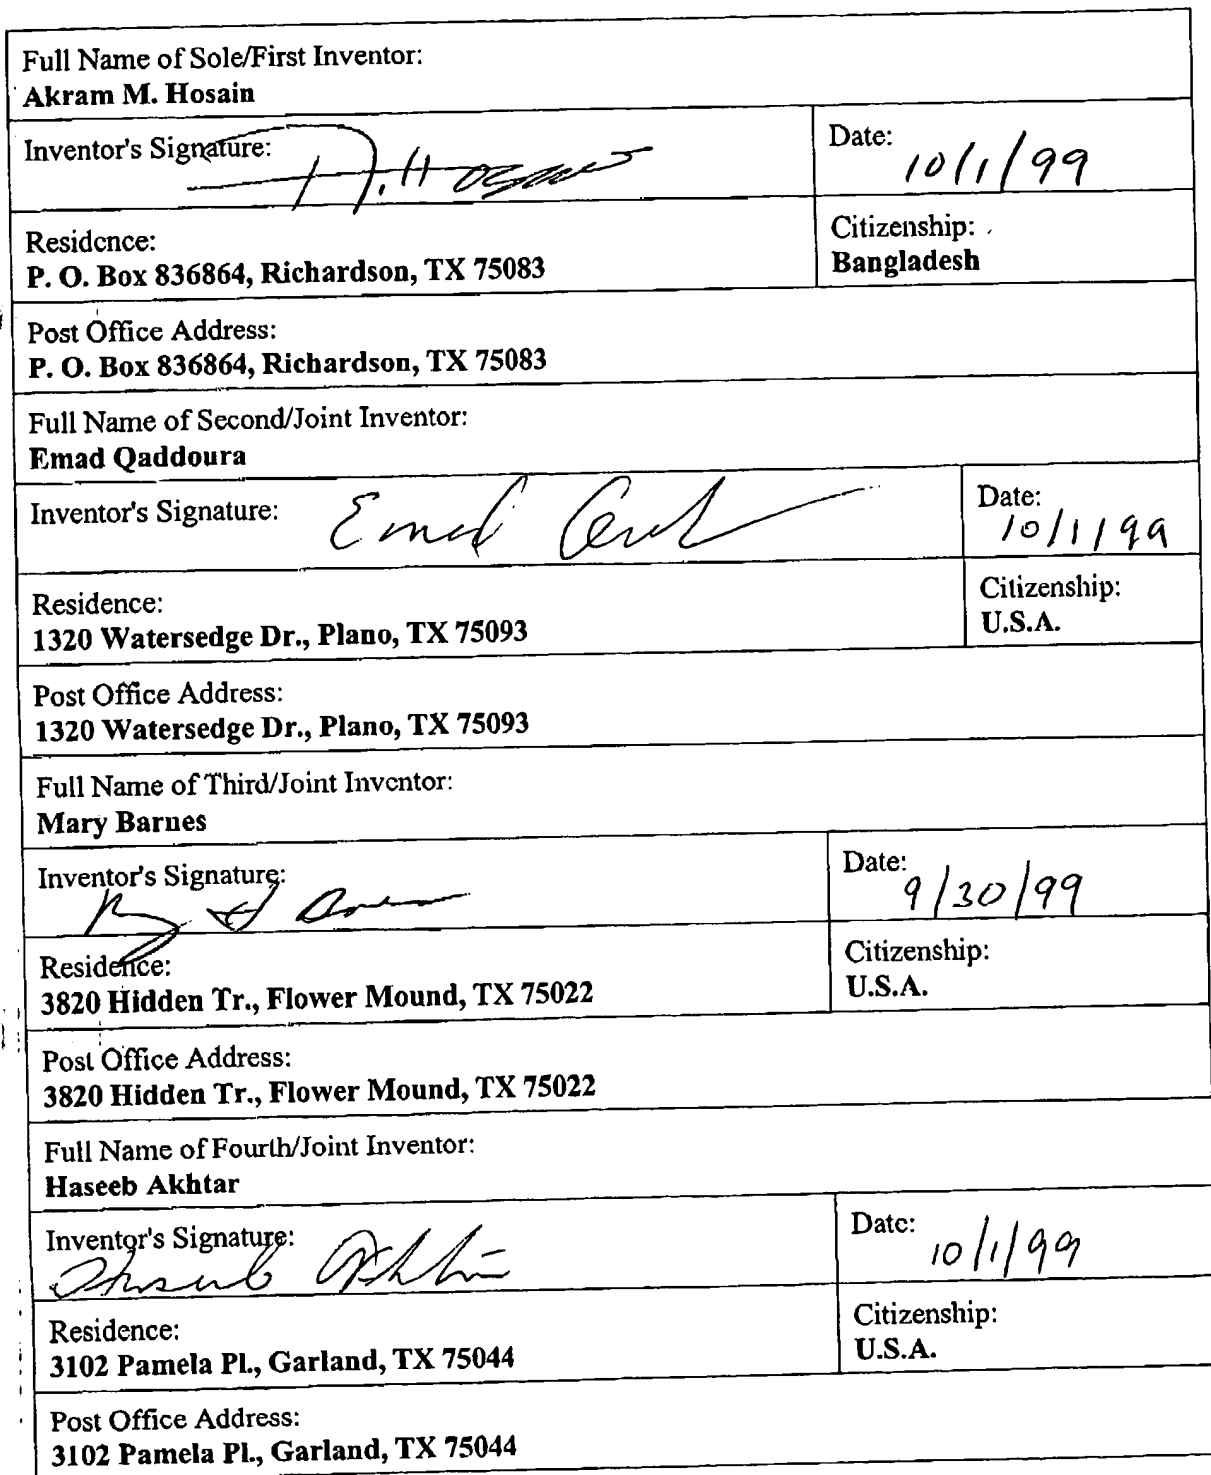 Full Name of Sole/First Inventor:
Akram M. Hosain
Inventor's Signature:
Date:
10/1/99
Residence:
P. O. Box 836864, Richardson, TX 75083
Citizenship:
Bangladesh
Post Office Address:
P. O. Box 836864, Richardson, TX 75083
Full Name of Second/Joint Inventor:
Emad Qaddoura
Inventor's Signature: Emad
Date:
10/1/99
Residence:
1320 Watersedge Dr., Plano, TX 75093
Citizenship:
U.S.A.
Post Office Address:
1320 Watersedge Dr., Plano, TX 75093
Full Name of Third/Joint Inventor:
Mary Barnes
Inventor's Signature:
Date:
9/30/99
Residence:
3820 Hidden Tr., Flower Mound, TX 75022
Citizenship:
U.S.A.
Post Office Address:
3820 Hidden Tr., Flower Mound, TX 75022
Full Name of Fourth/Joint Inventor:
Haseeb Akhtar
Inventor's Signature:
Haseeb Akhtar
Date:
10/1/99
Residence:
3102 Pamela Pl., Garland, TX 75044
Citizenship:
U.S.A.
Post Office Address:
3102 Pamela Pl., Garland, TX 75044